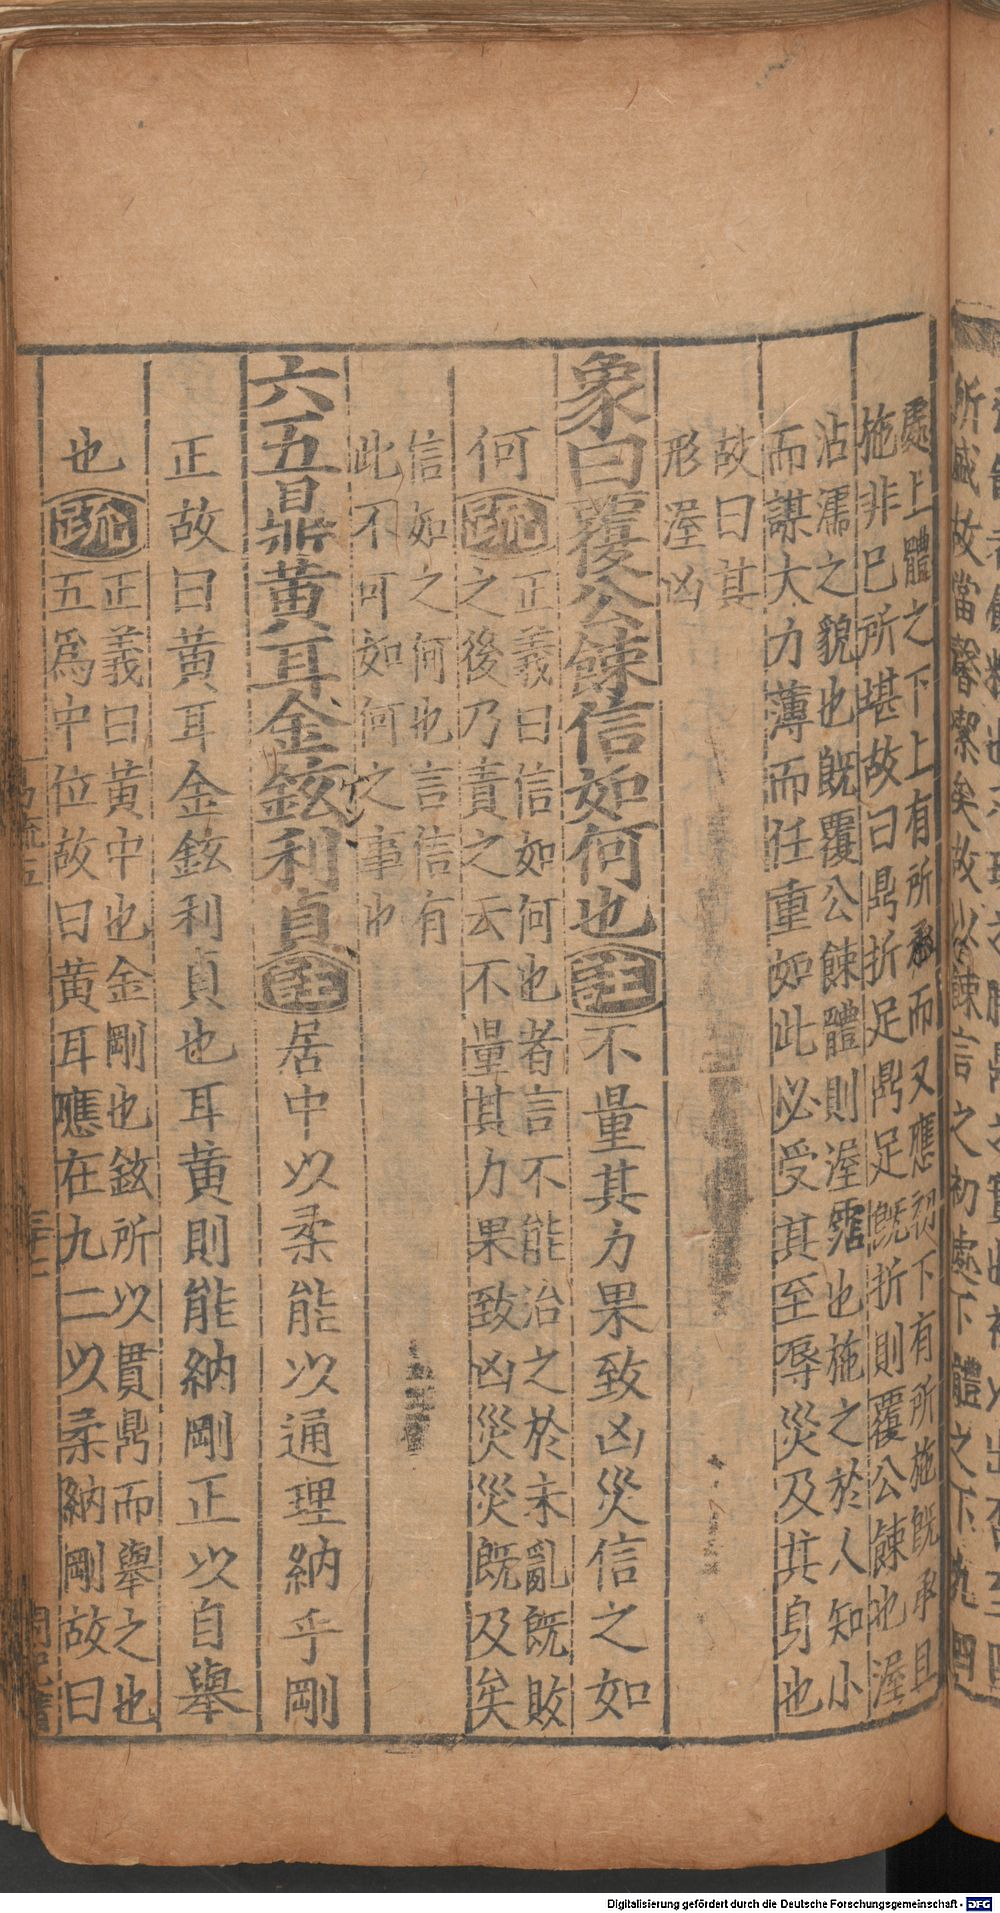 處上體之下上有所承而又應初下有所施既承且
施非巳所堪故曰鼎折足鼎足既折則覆公餗也渥
沾濡之貌也既覆公餗體則渥霑也施之於人知小
而謀大力薄而任重如此必受其至辱災及其身也
故曰其
形渥凶
象曰覆公餗信如何也註不量其力果致凶災信之如
何疏
正義曰信如何也者言不能治之於未亂既敗
之後乃責之云不量其力果致凶災災既及矣
信如之何也言信有
此不可如何之事也
六五鼎黃耳金鉉利貞註居中以柔能以通理納乎剛
正故曰黃耳金鉉利貞也耳黃則能納剛正以自舉
也疏
正義曰黃中也金剛也鉉所以貫鼎而舉之也
五為中位故曰黃耳應在九二以柔納剛故曰
Digitalisierung gefördert durch die Deutsche Forschungsgemeinschaft - DFG